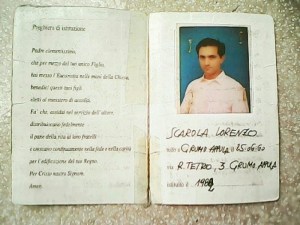 Preghiera di istituzione
Padre clementissimo,
che per mezzo del tuo unico Figlio,
hai messo l'Eucaristia nelle mani della Chiesa,
benedici questi tuoi figli
eletti al ministero di accoliti.
Fa' che, assidui nel servizio dell'altare,
distribuiscano fedelmente
il pane della vita ai loro fratelli
e crescano continuamente nella fede e nella carità
per l'edificazione del tuo Regno.
Per Cristo nostro Signore.
Amen
SCAROLA LORENZO
nato a GRUMO APPULA il
via R. TETRO, 3 GRUMO APPULA
istituito il